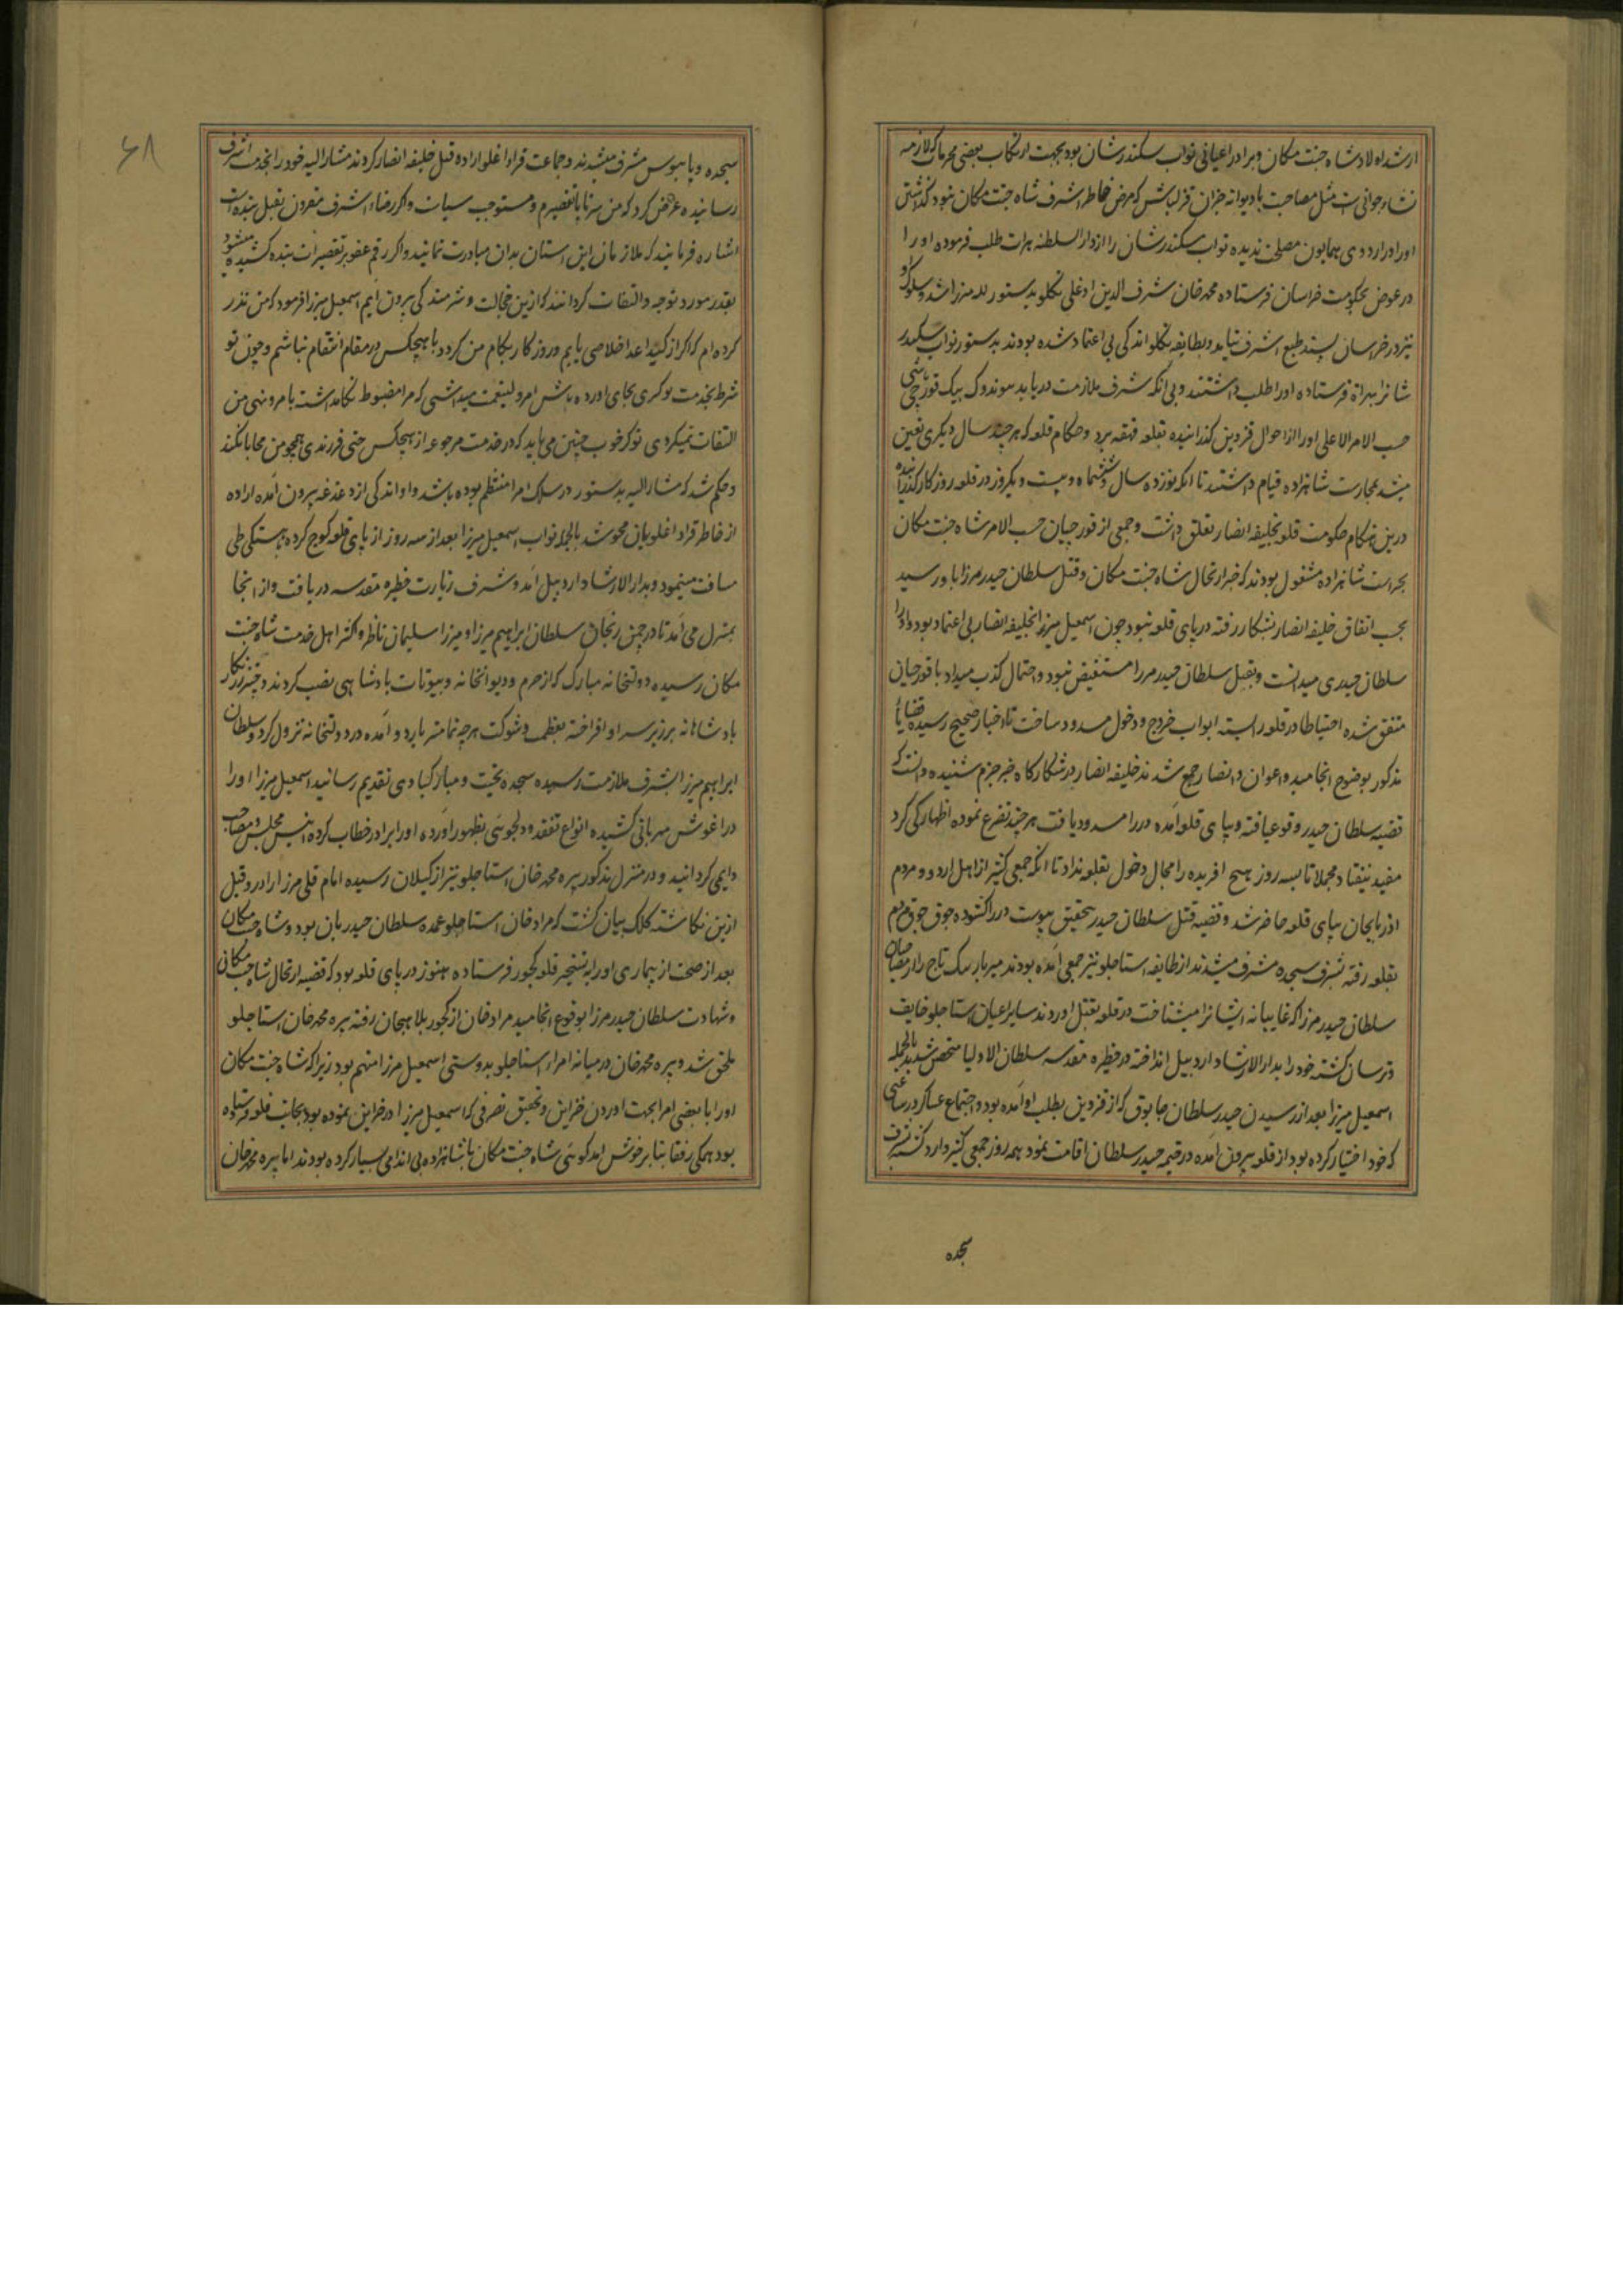 ارشد اولاد شاه جنت مکان و برادر اعیانی نواب سکندر شان بود بجهت ارتکاب بعضی محرمات که لازمه
نشاء جوانی است مثل مصاحبت با دیوانه جران قزلباش که مرضی خاطر اشرف شاه جنت مکان نبود گذاشتن
او را در اردوی همایون مصلحت ندیده نواب سکندر شان را از دار السلطنه هرات طلب فرموده او را
در عوض بحکومت خراسان فرستاده محمد خان شرف الدین اوغلی تکلو بدستور لله میرزا شد و سلوک او
نیز در خراسان پسند طبع اشرف نیامد و بطایفه تکلو اندکی بی اعتماد شده بودند بدستور نواب سکندر
شانرا بهراة فرستاده او را طلب داشتند و بی آنکه شرف ملازمت دریابد سوندوک بیک قورچی باشی
حسب الامر الاعلی او را از احوال قزوین گذرانیده بقلعه قهقهه برد و حکام قلعه که هر چند سال دیگری تعین
میشد بحارست شاهزاده قیام داشتند تا آنکه نوزده سال و ششماه و بیست و یکروز در قلعه روزگار گذرانیده
درین هنگام حکومت قلعه بخلیفه انصار تعلق داشت و جمعی از قورچیان حسب الامر شاه جنت مکان
بحراست شاهزاده مشغول بودند که خبر ارتحال شاه جنت مکان و قتل سلطان حیدر میرزا باو رسید
بحسب اتفاق خلیفه انصار بشکار رفته در پای قلعه نبود چون اسمعیل میرزا بخلیفه انصار بی اعتماد بود و او را
سلطان حیدری میدانست و بقتل سلطان حیدر میرزا مستفیض نبود و احتمال کذب میداد با قورچیان
متفق شده احتیاطا در قلعه را بسته ابواب خروج و دخول مسدود ساخت تا اخبار صحیح رسیده قضایا
مذکور بوضوح انجامید و اعوان و انصار جمع شدند خلیفه انصار در شکارگاه خبر جزم شنیده دانست که
قضیه سلطان حیدر وقوع یافته و بپای قلعه آمده در را مسدود یافت هر چند تضرع نموده اظهار یکی کرد
مفید نیفتاد مجملا تا سه روز هیچ آفریده را مجال دخول بقلعه نداد تا آنکه جمعی کثیر از اهل اردو و مردم
اذربایجان بپای قلعه حاضر شد و قضیه قتل سلطان حیدر بتحقیق پیوست در را گشوده جوق جوق مردم
بقلعه رفته بشرف سجده مشرف میشدند از طایفه استاجلو نیز جمعی آمده بودند میر یار سک تاج را از مصاحبان
سلطان حیدر میرزا که غایبانه ایشانرا میشناخت در قلعه بقتل آوردند سایر اعیان استاجلو خایف
و ترسان گشته خود را بدار الارشاد اردبیل انداخته در حظیره مقدسه سلطان الاولیا متحصن شدند بالجمله
اسمعیل میرزا بعد از رسیدن حیدر سلطان چابوق که از قزوین بطلب او آمده بود و اجتماع عساکر در ساعتی
که خود اختیار کرده بود از قلعه بیرون آمده در خیمه حیدر سلطان اقامت نمود همه روز جمعی کثیر وارد گشته بشرف
سجده
۶۸
سجده و پابوس مشرف میشدند و جماعت قراداغلو اراده قتل خلیفه انصار کردند مشار الیه خود را بخدمت اشرف
رسانیده عرض کرد که من سرتاپا تقصیرم و مستوجب سیاست و اگر رضاء اشرف مقرون بقتل بنده است
اشاره فرمایند که ملازمان این آستان بدان مبادرت نمایند و اگر رقم عفو بر تقصیرات بنده کشیده میشود
بقدر مورد توجه و التفات گردانند که ازین خجالت و شرمندگی بیرون آیم اسمعیل میرزا فرمود که من نذر
کرده ام که اگر از کید اعدا خلاصی یابم و روزگار بکام من گردد با هیچکس در مقام انتقام نباشم و چون تو
شرط بخدمت نوکری بجای آورده باش امر ولینعمت میداشتی که مرا مضبوط نگاهداشت بامر و نهی من
التفات نمیکردی نوکر خوب چنین می باید که در خدمت مرجوعه از هیچکس حتی فرزندی همچو من محابا نکند
و حکم شد که مشار الیه بدستور در سلک امرا منتظم بوده باشد و او اندکی از دغدغه بیرون آمده اراده
از خاطر قراداغلویان محو شد بالجمله نواب اسمعیل میرزا بعد از سه روز از پای قلعه کوچ کرده بآهستگی طی
مسافت مینمود و بدار الارشاد اردبیل آمد و شرف زیارت حظیره مقدسه دریافت و از آنجا
بمنزل می آمد تا در چمن زنجان سلطان ابراهیم میرزا و میرزا سلیمان ناظر و اکثر اهل خدمت شاه جنت
مکان رسیده دولتخانه مبارک که از حرم و دیوانخانه و بیوتات پادشاهی نصب کردند و چتر زرنگار
پادشاهانه بر زبر سر او افراخته بعظمت و شوکت هر چه تمامتر باردو آمده در دولتخانه نزول کرد و سلطان
ابراهیم میرزا بشرف ملازمت رسیده سجده تحیت و مبارکبادی تقدیم رسانید اسمعیل میرزا او را
در آغوش مهربانی کشیده انواع تفقد و دلجوئی بظهور آورده او را برادر خطاب کرده انیس مجلس و مصاحب
دایمی گردانید و در منزل مذکور پیره محمد خان استاجلو نیز از گیلان رسیده امام قلی میرزا را آورد و قبل
ازین نگاشته کلک بیان گشت که مراد خان استاجلو عمده سلطان حیدریان بود و شاه جنت مکان
بعد از صحت از بیماری او را به تسخیر قلعه کجور فرستاده هنوز در پای قلعه بود که قضیه ارتحال شاه جنت مکانی
و شهادت سلطان حیدر میرزا بوقوع انجامید مراد خان از کجور بلاهیجان رفته به پیره محمد خان استاجلو
ملحق شد و پیره محمد خان در میانه امراء استاجلو بدوستی اسمعیل میرزا متهم بود زیرا که شاه جنت مکان
او را با بعضی امرا بجهت آوردن خزاین و تحقیق تصرفی که اسمعیل میرزا در خزاین نموده بود بجانب قلعه فرستاده
بود همگی رفقا بنا بر خوش آمدگوئی شاه جنت مکان با شاهزاده بی اندامی بسیار کرده بودند اما پیره محمد خان